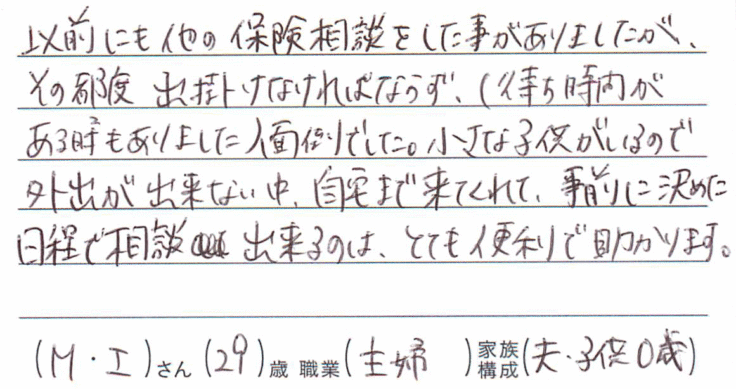 以前にも他の保険相談をした事がありましたが、
その都度 出掛けなければならず、(待ち時間が
ある時もありました)面倒でした。小さな子供がいるので
外出が出来ない中、自宅まで来てくれて、事前に決めた
日程で相談 出来るのは、とても便利で助かります。
(M・I)さん(29)歳 職業(主婦 )家族構成(夫・子供0歳)